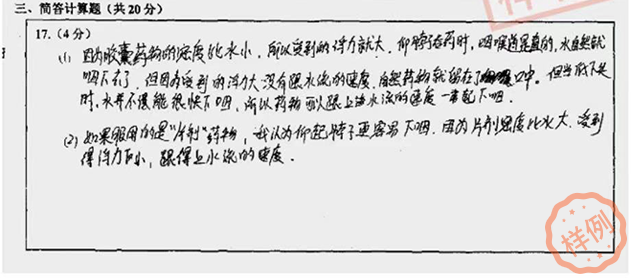 三、简答计算题(共20分)
17.(4分)
(1) 因为胶囊药物的密度比水小,所以受到的浮力就大,仰脖子吞药时,咽喉道是直的,水自然就
咽下去了,但因为受到的浮力大,没有跟水流的速度,自然药物就留在了口中。但当低下头
时,水并不很能很快下咽,所以药物可以跟上海水流的速度一起下咽.
(2) 如果服用的是"片剂"药物,我认为仰起脖子更容易下咽。因为片剂密度比水大,受到
得浮力小,跟得上水流的速度.
样例